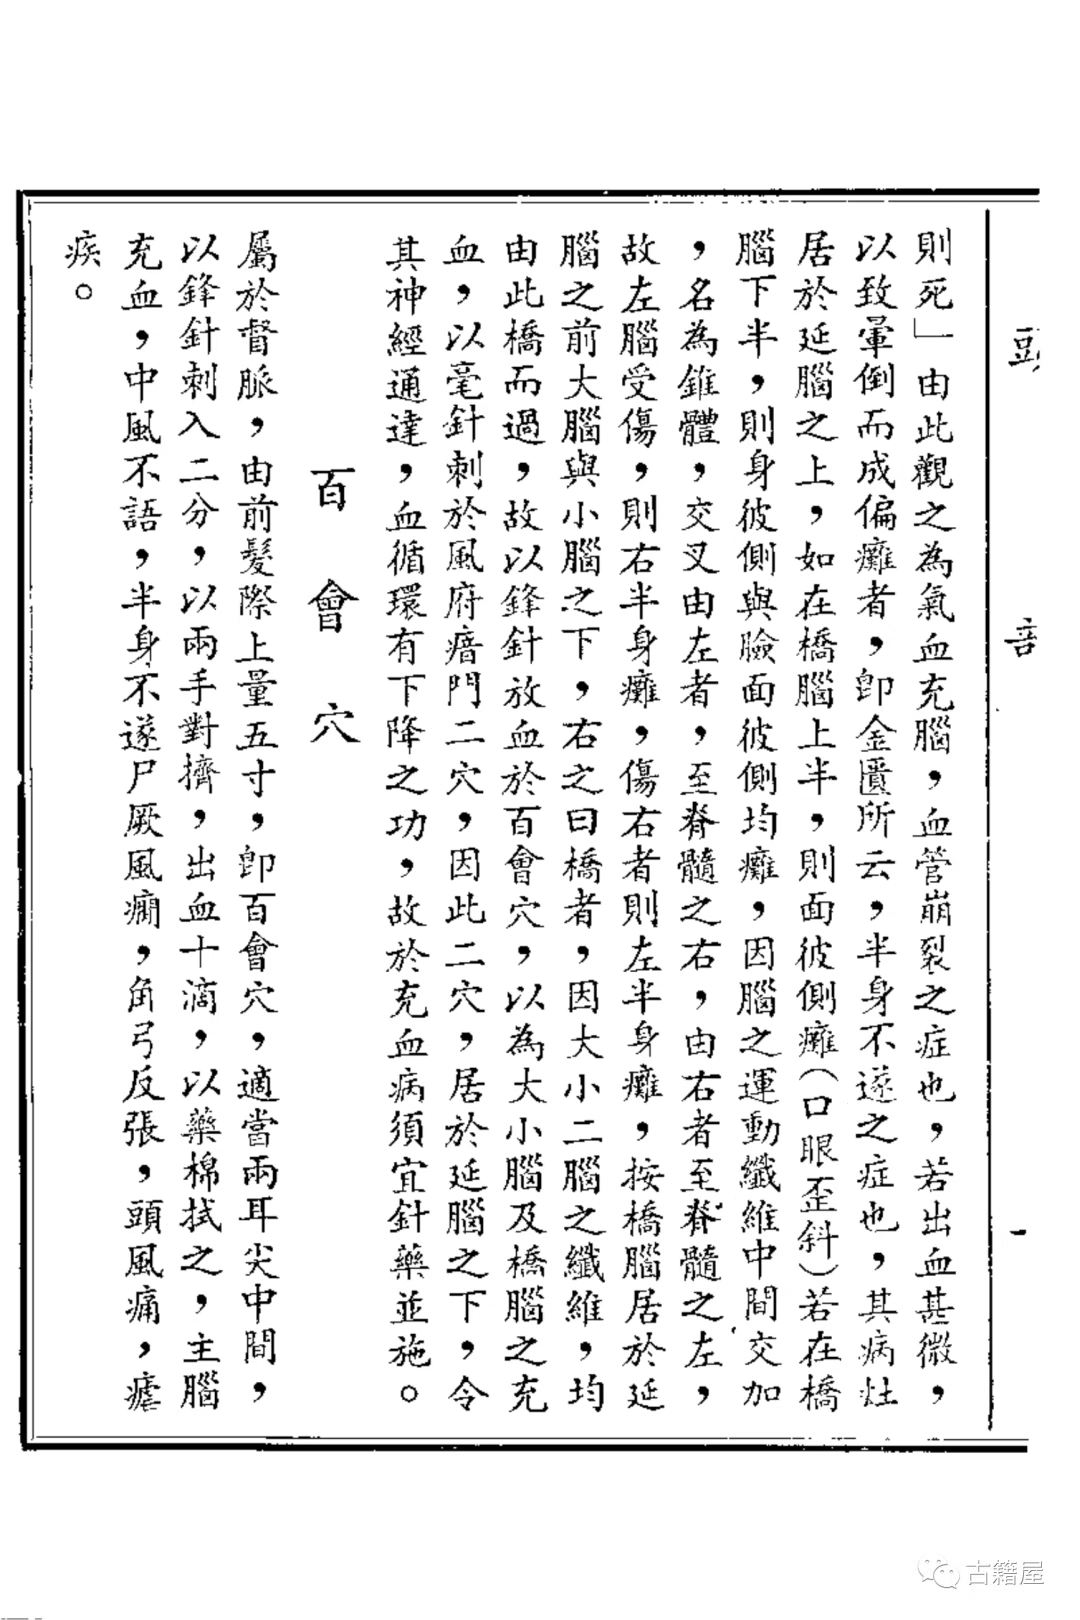 頭部 一
則死」由此觀之為氣血充腦，血管崩裂之症也，若出血甚微，
以致暈倒而成偏癱者，即金匱所云，半身不遂之症也，其病灶
居於延腦之上，如在橋腦上半，則面彼側癱（口眼歪斜）若在橋
腦下半，則身彼側與臉面彼側均癱，因腦之運動纖維中間交加
，名為錐體，交叉由左者，至脊髓之右，由右者至脊髓之左，
故左腦受傷，則右半身癱，傷右者則左半身癱，按橋腦居於延
腦之前大腦與小腦之下，右之曰橋者，因大小二腦之纖維，均
由此橋而過，故以鋒針放血於百會穴，以為大小腦及橋腦之充
血，以毫針刺於風府瘖門二穴，因此二穴，居於延腦之下，令
其神經通達，血循環有下降之功，故於充血病須宜針藥並施。
百會穴
屬於督脈，由前髮際上量五寸，即百會穴，適當兩耳尖中間，
以鋒針刺入二分，以兩手對擠，出血十滴，以藥棉拭之，主腦
充血，中風不語，半身不遂尸厥風癎，角弓反張，頭風痛，瘧
疾。
古籍屋